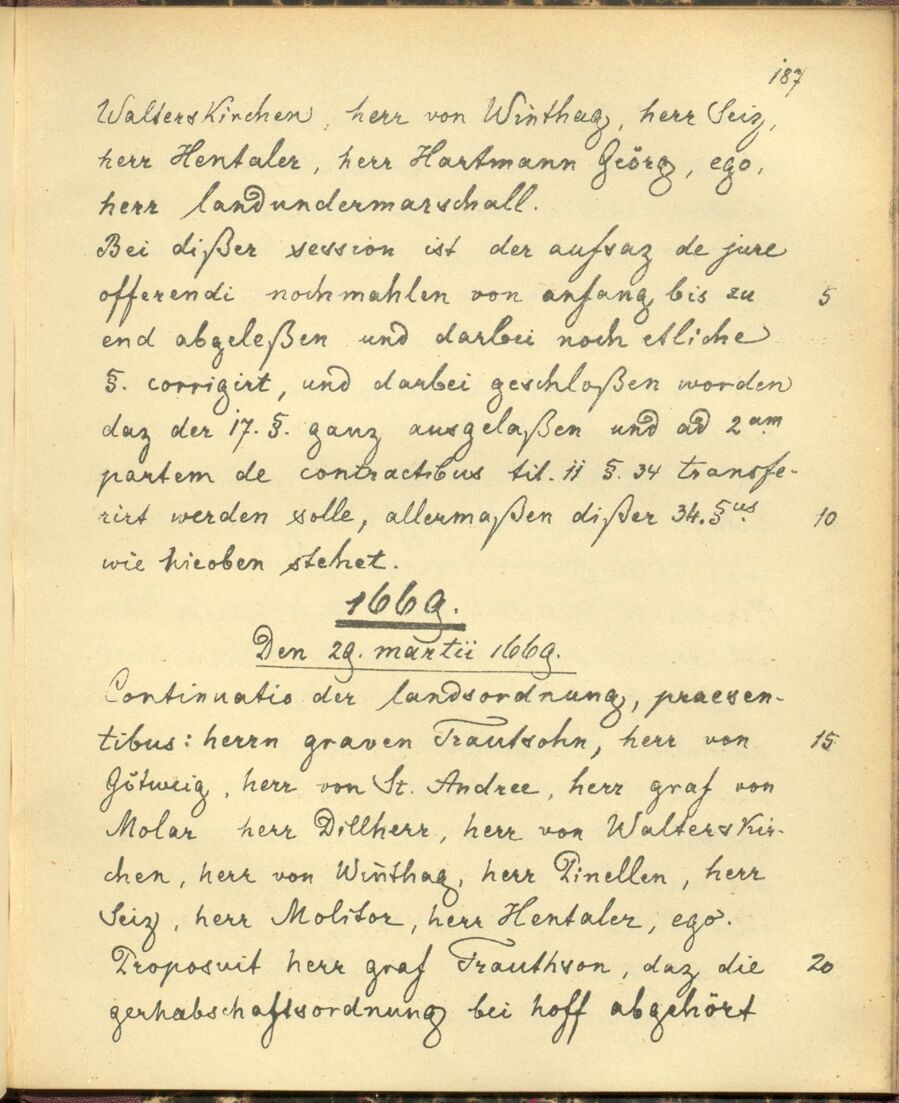 187
Walterskirchen, herr von Winthag, herr Seiz,
herr Hentaler, herr Hartmann Geörg, ego,
herr landundermarschall.
Bei dißer session ist der aufsaz de jure
offerendi nochmahlen von anfang bis zu 5
end abgeleßen und darbei noch etliche
§. corrigirt, und darbei geschloßen worden
daz der 17. §. ganz ausgelaßen und ad 2am
partem de contractibus tit. ii §. 34 transfe-
rirt werden solle, allermaßen dißer 34. §us 10
wie hieoben stehet.
1669.
Den 29. martii 1669.
Continuatio der landsordnung, praesen-
tibus: herrn graven Trautsohn, herr von 15
Götweig, herr von St. Andree, herr graf von
Molar herr Dillherr, herr von Walterskir-
chen, herr von Winthag, herr Pinellen, herr
Seiz, herr Molitor, herr Hentaler, ego.
Proposuit herr graf Trauthson, daz die 20
gerhabschaftsordnung bei hoff abgehört